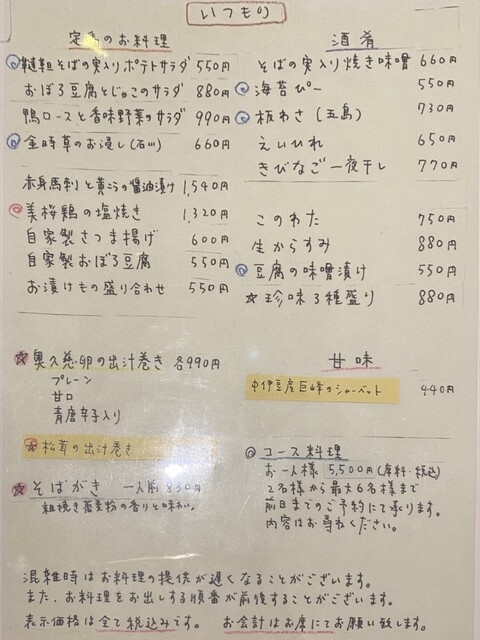 いつもの
定番のお料理
韃靼そばの実入りポテトサラダ 550円
おぼろ豆腐とじゃこのサラダ 880円
鴨ロースと香味野菜のサラダ 990円
金時草のお浸し(石川) 660円
赤身馬刺と黄ニラの醤油漬け 1,540円
美桜鶏の塩焼き 1,320円
自家製さつま揚げ 600円
自家製おぼろ豆腐 550円
お漬けもの盛り合わせ 550円
☆奥久慈卵の出汁巻き 各990円
プレーン
甘口
青唐辛子入り
松茸の出汁巻き
☆そばがき 一人前 830円
粗挽き蕎麦粉の香りと味わい
酒肴
そばの実入り焼き味噌 660円
海苔ぴー 550円
板わさ(五島) 730円
えいひれ 650円
きびなご一夜干し 770円
このわた 750円
生からすみ 880円
豆腐の味噌漬け 550円
☆珍味3種盛り 880円
甘味
中伊豆産巨峰のシャーベット 440円
コース料理
お一人様 5,500円(席料・税込)
2名様から最大6名様まで
前日までのご予約にて承ります。
内容はお尋ねください。
混雑時はお料理の提供が遅くなることがございます。
また、お料理をお出しする順番が前後することがございます。
表示価格は全て税込みです。 お会計はお席にてお願い致します。